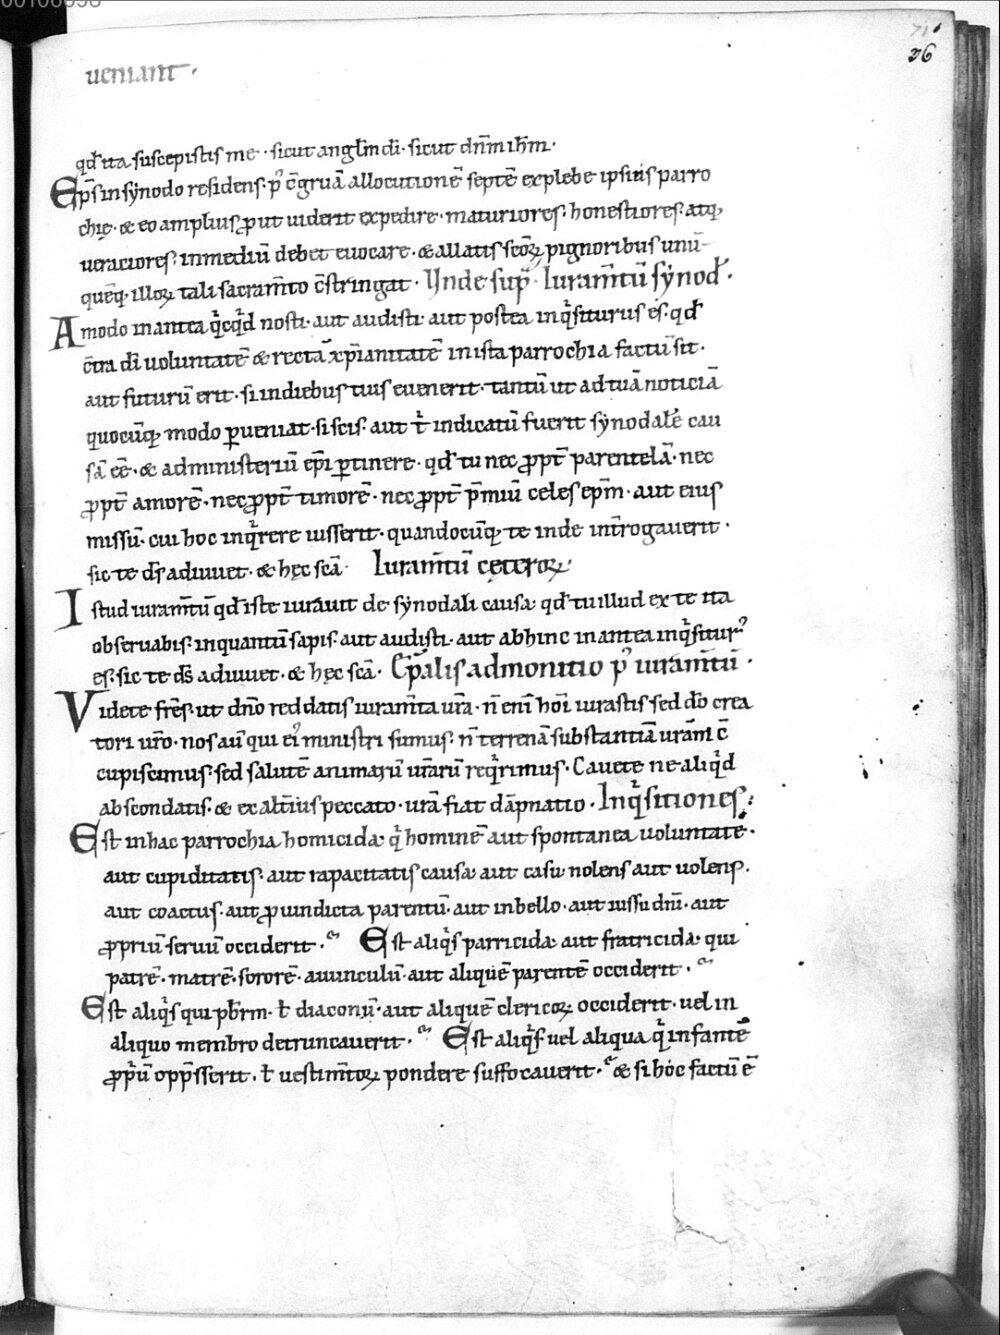 00106098
716
26
ueniant ·
qđ ita suscepistis me · sicut angłm dī · sicut dn̄m ih̄m ·
Ep̄s in synodo residens · p̾ c̄gruā allocutionē septē ex plebe ipsius parro
chię · & eo amplius ꝓut uiderit expedire · maturiores · honestiores · atq;
ueraciores · in mediū debet euocare · & allatis scōꝝ pignoribus unū
quēq; illoꝝ tali sacram̄to c̄stringat · Vnde sup̄ Iuram̄tū synod ·
A modo in antea qͥcqͥd nosti · aut audisti · aut postea inqͥsiturus es · qđ
c̄tra dī uoluntatē & rectā xp̄ianitatē in ista parrochia factū sit ·
aut futurū erit · si in diebus tuis euenerit · tantū ut ad tuā noticiā
quocūq; modo ꝑueniat · si scis · aut t̄ indicatū fuerit synodalē cau
sā eē · & administeriū ep̄i ꝑtinere · qđ tu nec ꝓpt̄ parentelā · nec
ꝓpt̄ amorē · nec ꝓpt̄ timorē · nec ꝓpt̄ p̄miū celes ep̄m · aut eius
missū · cui hoc inqͥrere iusserit · quandocūq; te inde int̄rogauerit ·
sic te ds̄ adiuuet · & hęc scā · Iuram̄tū cęteroꝝ
Istud iuram̄tū qđ iste iurauit de synodali causa · qđ tu illud ex te ita
obseruabis · inquantū sapis · aut audisti · aut abhinc in antea inqͥsitur᾽
es · sic te ds̄ adiuuet · & hęc scā · Ep̄alis admonitio p̾ iuram̄tū ·
Videte fr̄es · ut dn̄o reddatis iuram̄ta ur̄a · n̄ enī hoī iurastis sed dō crea
tori ur̄o · nos aū qui ei᾽ ministri sumus · n̄ terrenā substantiā ur̄am c̄
cupiscimus · sed salutē animarū ur̄arū reqͥrimus · Cauete ne aliqͥd
abscondatis · & ex alt̄ius peccato · ur̄a fiat dāpnatio · Inqͥsitiones ·
Est in hac parrochia homicida · qͥ hominē aut spontanea uoluntate ·
aut cupiditatis · aut rapacitatis causa · aut casu nolens aut uolens ·
aut coactus · aut ꝓ uindicta parentū · aut in bello · aut iussu dn̄i · aut
ꝓpriū seruū occiderit · Est aliqͥs parricida · aut fratricida · qui
patrē · matrē · sororē · auunculū · aut aliquē parentē occiderit ·
Est aliqͥs qui pb̄rm · ł diaconū · aut aliquē clericoꝝ occiderit · uel in
aliquo membro detruncauerit · Est aliqͥs uel aliqua qͥ infantē
ꝓpͥū opp̄sserit · ł uestim̄toꝝ pondere suffocauerit · & si hoc factū ē